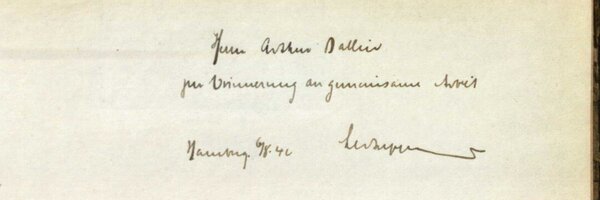 Herrn Arthur Dallin
zur Erinnerung an gemeinsame Arbeit
Hamburg 6/8. 42